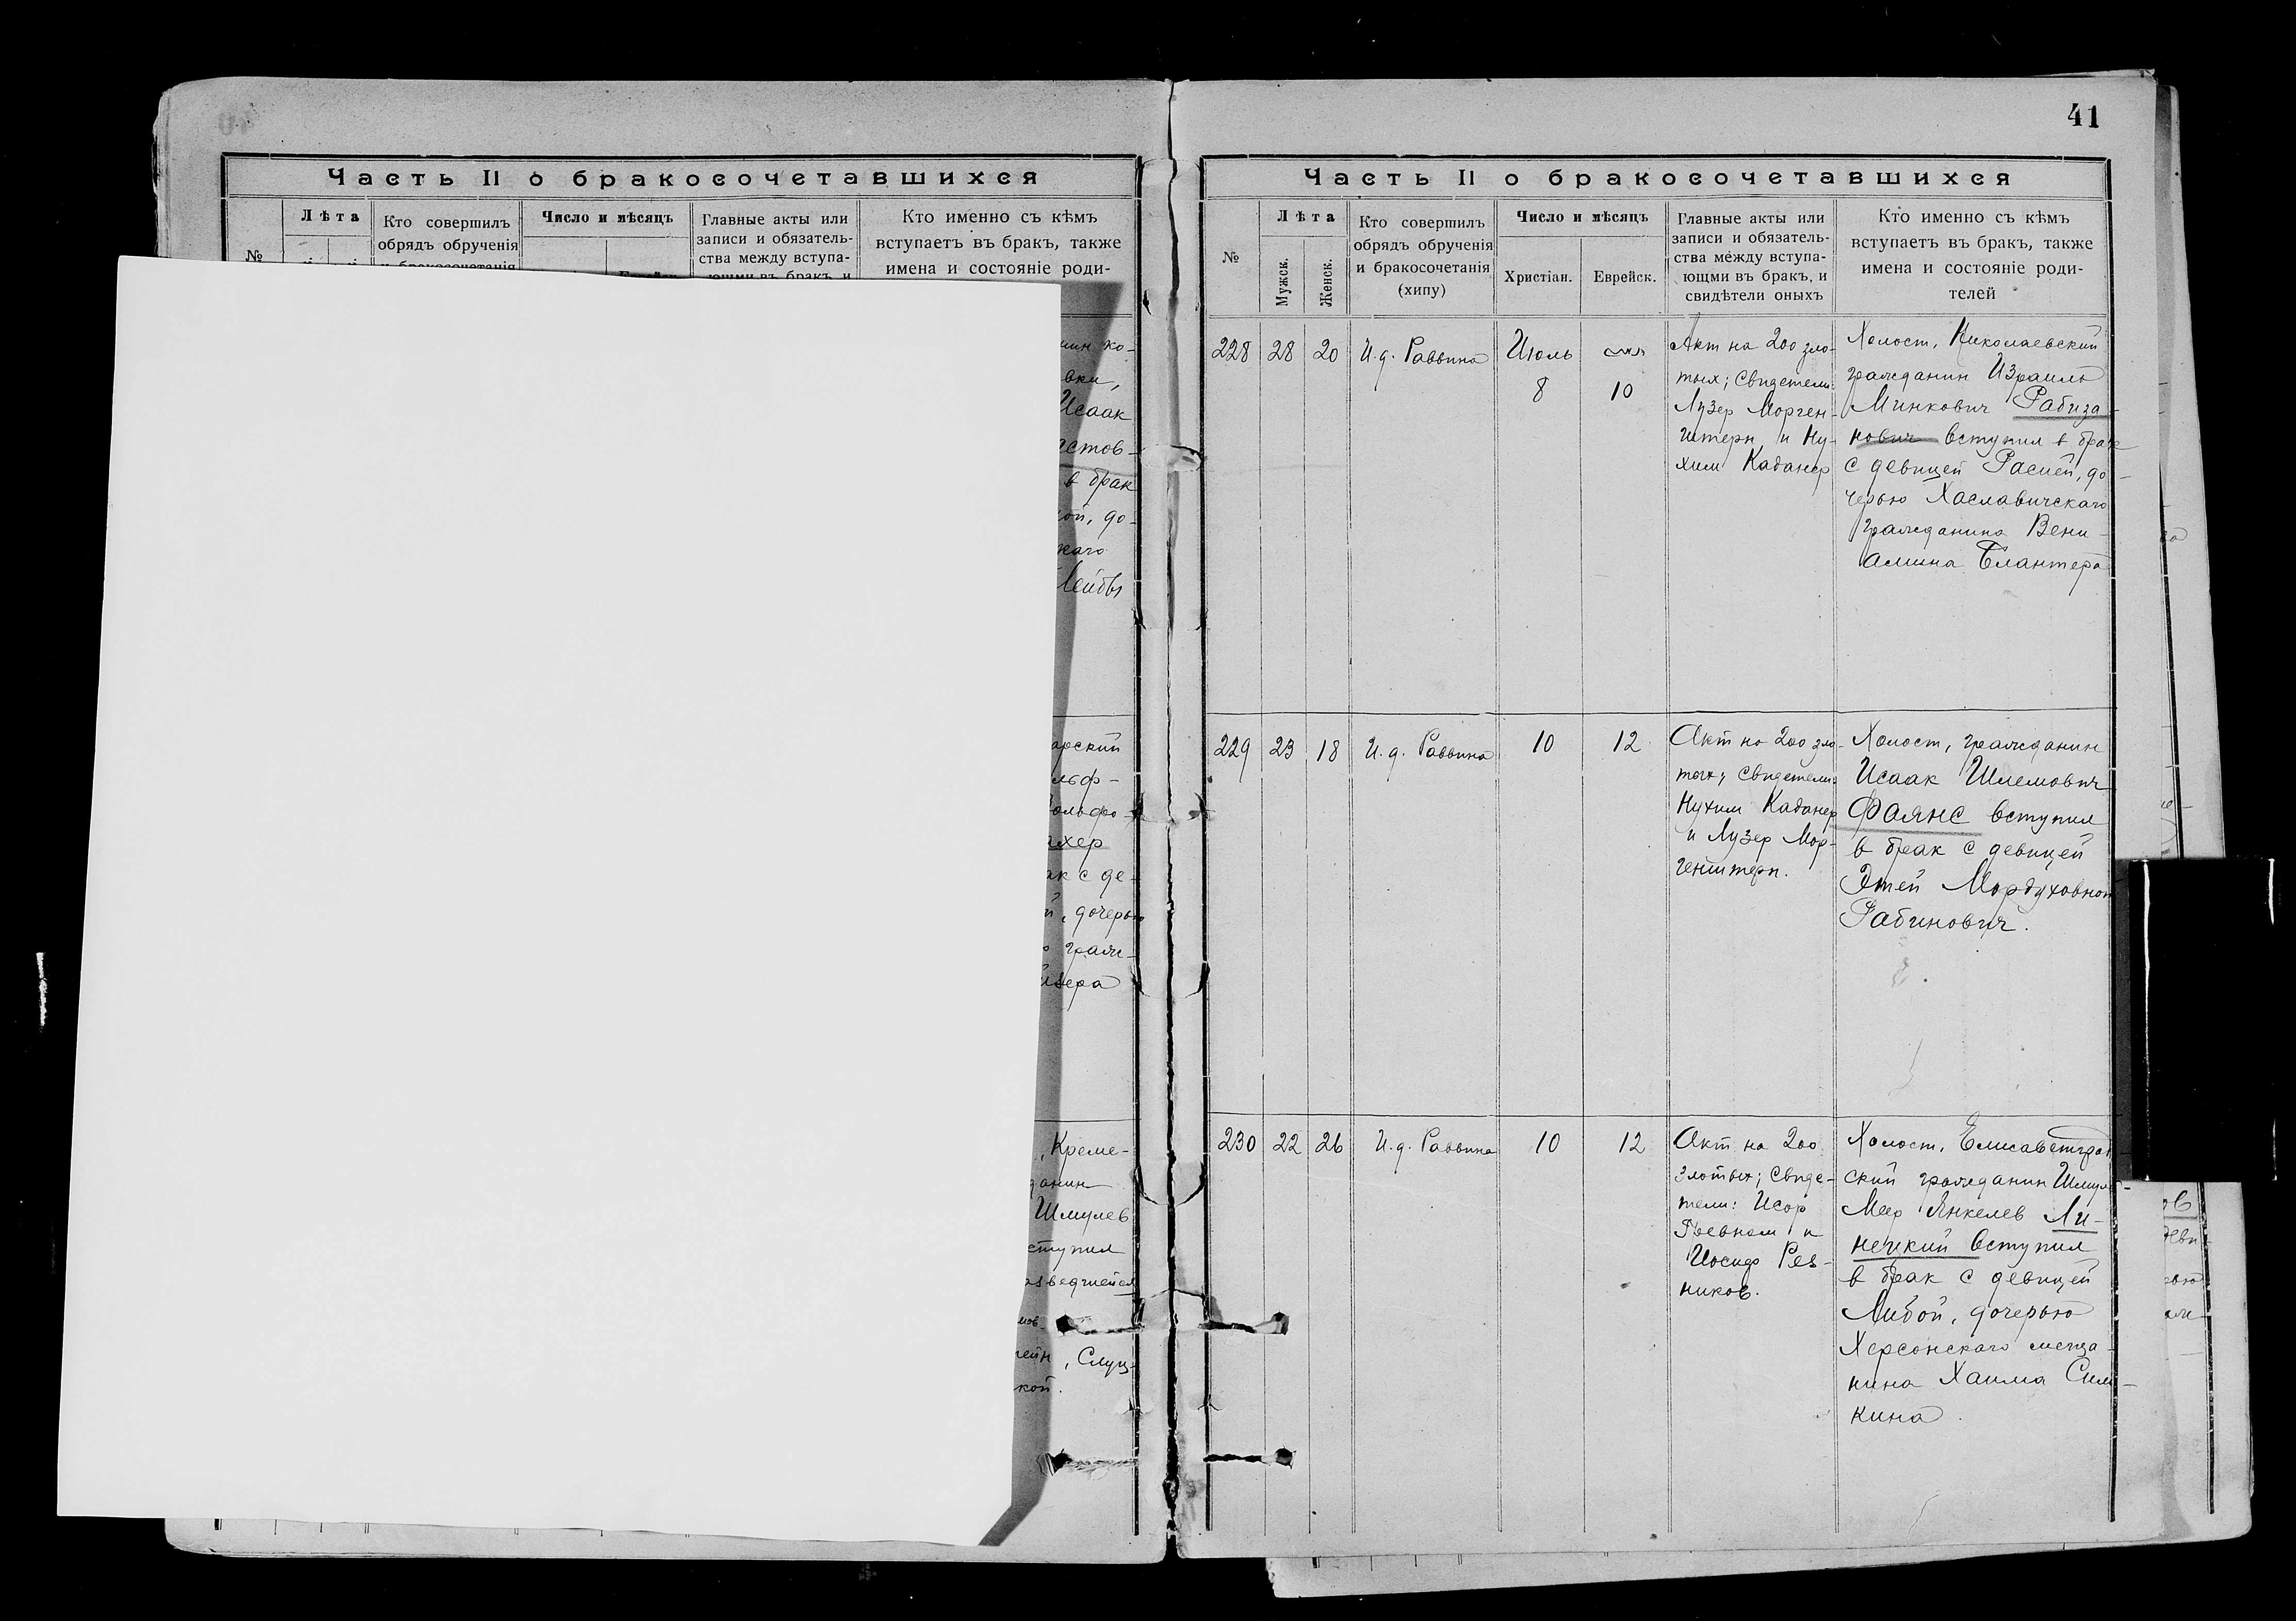 41
Часть II о бракосочетавшихся
№
Лѣта
Кто совершилъ
обрядъ обрученія
Число и мѣсяцъ
Главные акты или
записи и обязатель-
ства между вступа-
Кто именно съ кѣмъ
вступаетъ въ бракъ, также
имена и состояніе роди-
ко-
вки,
Исаак
в брак
до-
Лейбы
арский
ахер
с де-
, дочерью
граж-
, Креме-
Шмулев
, Слуц-
кой.
Часть II о бракосочетавшихся
№
Лѣта
Мужск.
Женск.
Кто совершилъ
обрядъ обрученія
и бракосочетанія
(хипу)
Число и мѣсяцъ
Христіан.
Еврейск.
Главные акты или
записи и обязатель-
ства между вступа-
ющми въ бракъ, и
свидѣтели оныхъ
Кто именно съ кѣмъ
вступаетъ въ бракъ, также
имена и состояніе роди-
телей
228
28
20
И. д. Раввина
Июль
8
10
Акт на 200 зло-
тых; Свидетели:
Лузер Морген-
штерн и Ну-
хим Каданер
Холост, Николаевский
гражданин Израиль
Минкович Рабиза-
нович вступил в брак
с девицей Расией, до-
черью Хославичскаго
гражданина Вени-
амина Блантера
229
23
18
И. д. Раввина
10
12
Акт на 200 зло-
тых; Свидетели:
Нухим Каданер
и Лузер Мор-
генштерн.
Холост, гражданин
Исаак Шлемович
Фаянс вступил
в брак с девицей
Этей Мордуховной
Рабинович.
230
22
26
И. д. Раввина
10
12
Акт на 200
злотых; Свиде-
тели: Исор
и
Иосиф Рез-
ников.
Холост, Елисаветград
ский гражданин Шмуль
Меер Янкелев Ли-
нецкий вступил
в брак с девицей
Либой, дочерью
Херсонскаго меща-
нина Хаима Сим-
кина.